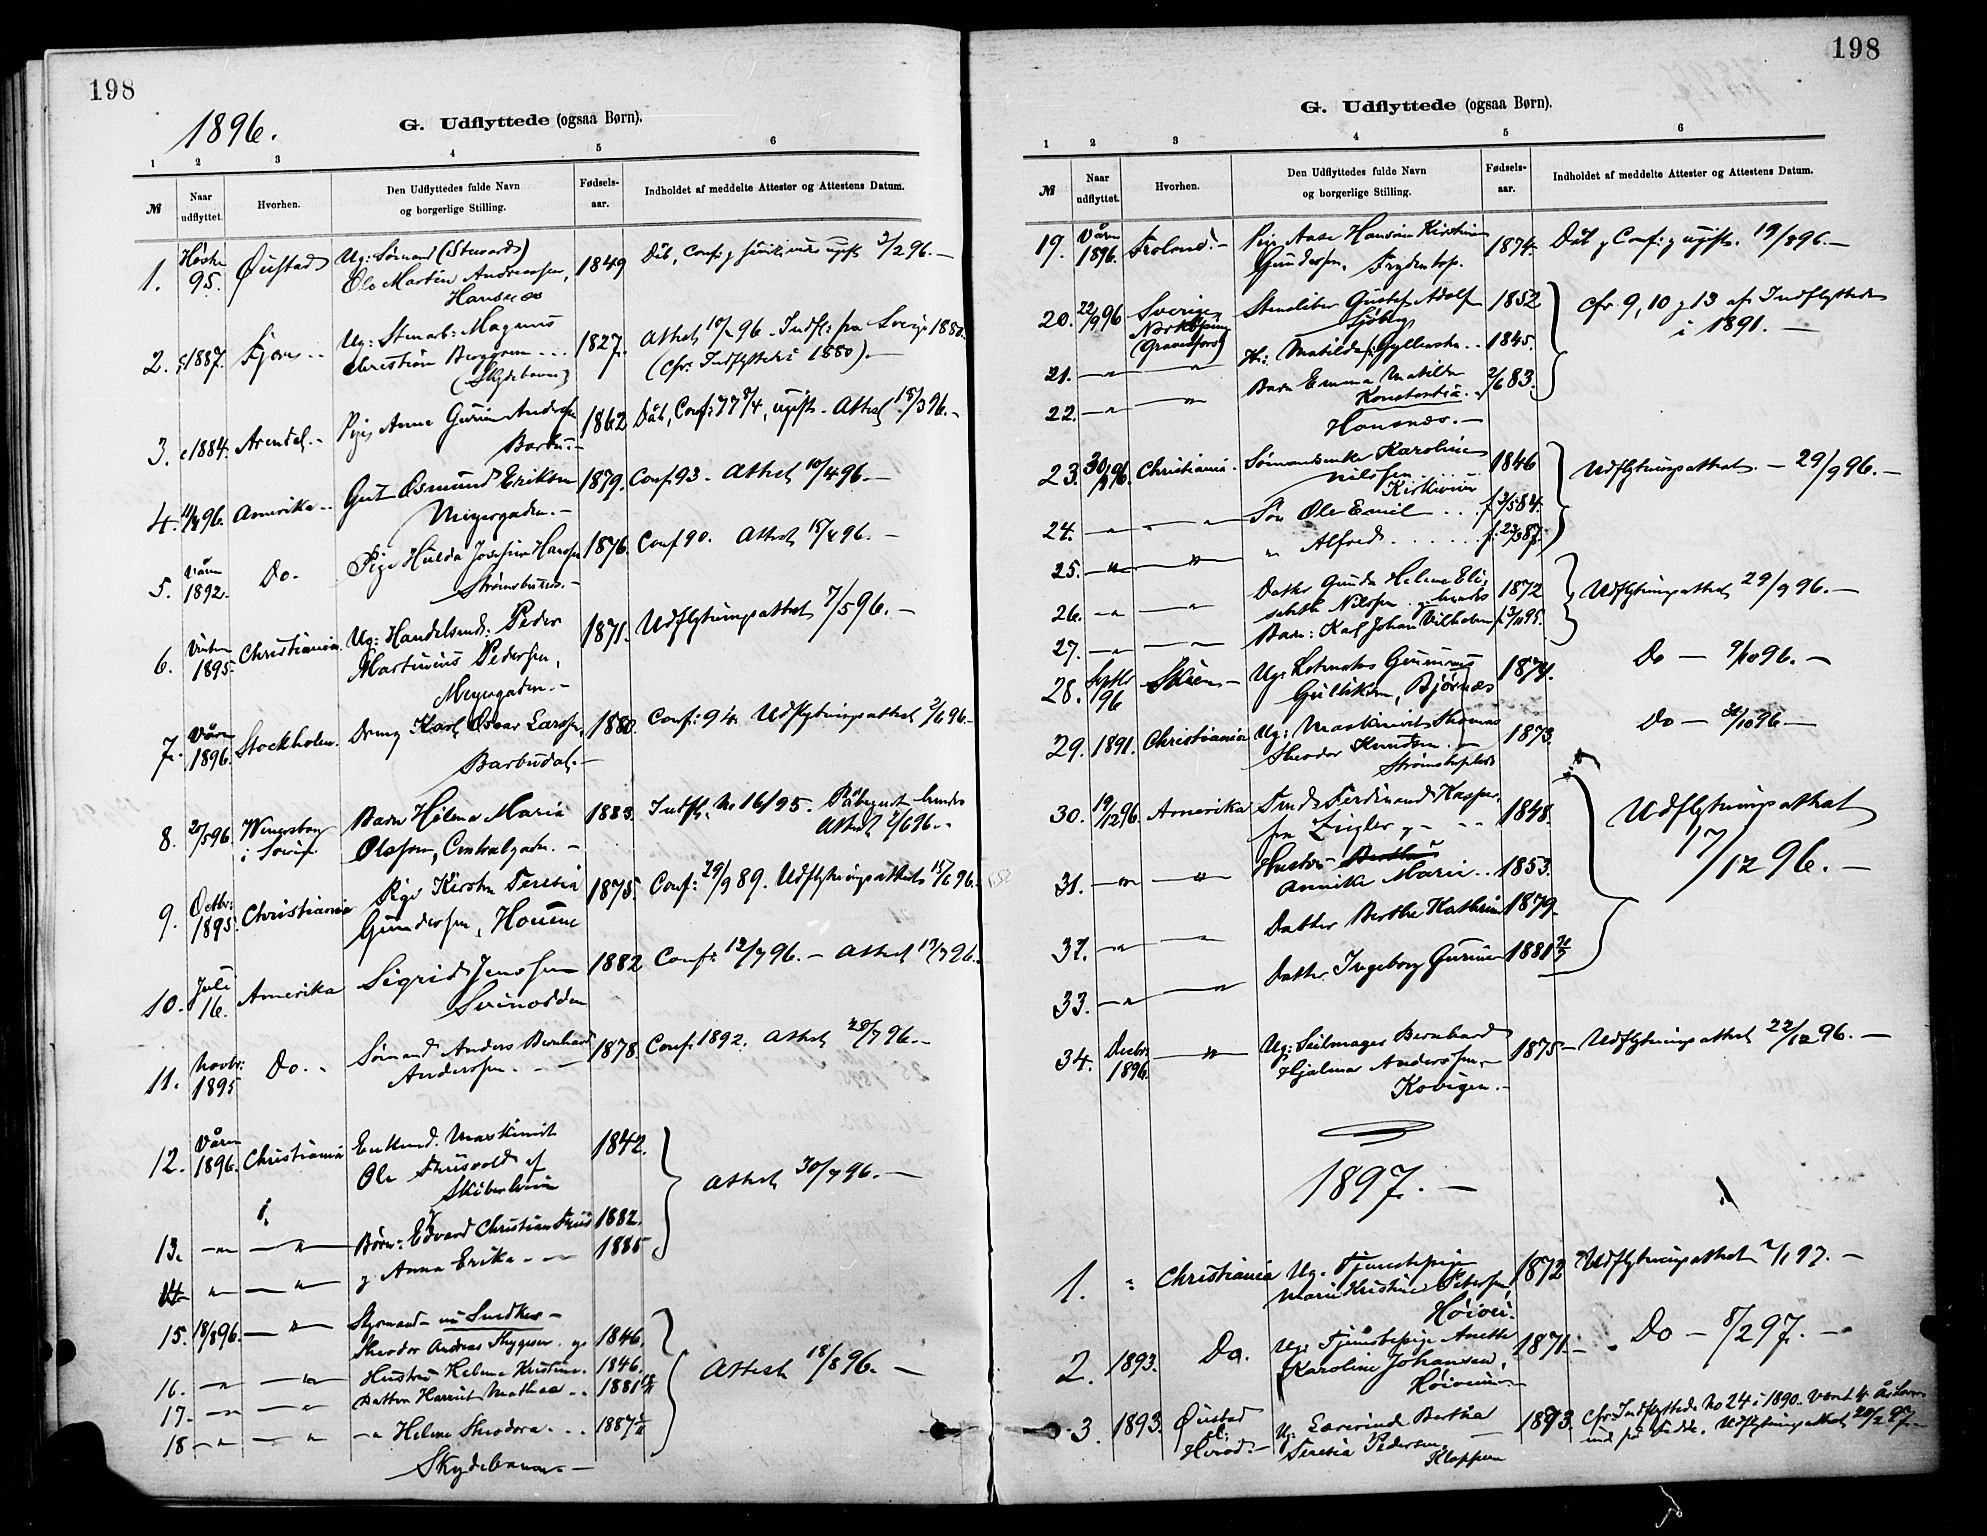 198
1896.
G. Udflyttede (ogsaa Børn).
1 2 3 4 5 6
№ Naar udflyttet. Hvorhen. Den Udflyttedes fulde Navn og borgerlige Stilling. Fødsels-aar. Indholdet af meddelte Attester og Attestens Datum.
1. Høsten 95. Øiestad Ug: Sømand (Steward) 1849 Dåb, Conf: g ugift 3/2 96.-
Ole Martin Andreassen,
Hansnæs
2. c 1887. Ug: Stenarb: Magnus 1827. Attest 10/2 96. Indfl: fra Sverige 1880
Christian Berggren (cfr. Indflyttede i 1880).-
(Skydebanen)
3. c 1884. Arendal.- Pige Anne Gurine Anderssen 1862 Dåb, Conf: 77, ugift - Attest 18/3 96.-
Barbu.-
4. 11/4 96. Amerika.- Gut Osmund Eriksen 1879. Conf 93. Attest 10/4 96.-
Meyergaden.-
5. Våren 1892. Do. Pige Hulda Josefine Hansen 1876. Conf 90. Attest 18/4 96.-
Strømsbuen.-
6. Vinteren 1895. Christiania Ug: Handelsmd: Peder 1871. Udflytningsattest 7/5 96.-
Martinius Pedersen,
Meyergaden.-
7. Våren 1896. Stockholm. Dreng Karl Oscar Larssen, 1880. Conf: 94. Udflytningsattest 2/6 96.-
Barbudal.-
8. 20/5 96. Wenersborg i Sverige Barn Hilma Maria 1883. Indfl. No 16/95. Påtegnet hendes
Olessen, Centralgaden.- Attest 2/6 96.-
9. Octbr: 1895. Christiania Pige Kirsten Teresia 1875. Conf: 29/9 89. Udflytningsattest 11/6 96.
Gundersen, Houene
10. Juli 16. Amerika Sigrid Jenssen 1882 Conf: 12/7 96.- Attest 13/7 96.
Svinodden
11. Novbr: 1895 Do.- Sømand Anders Bernhard 1878. Conf. 1892. Attest 28/7 96.-
Anderssen.-
12. Våren 1896. Christiania Enkemd. Maskinist 1842.
Ole Friisvold af
Skiberheim Attest 30/7 96.-
13. -"- -"- Børn: Edvard Christian Friis 1882.
14 -"- -"- g Anna Erika 1885
15. 18/8 96. -"- Styrmand - nu Snedker -
Theodor Andreas Thygesen. g 1846.
16. -"- -"- Hustru Helene Kristine. 1846. Attest 18/8 96.-
17. -"- -"- Datter Harriet Mathea 1881
18 -"- -"- -"- Helene Theodora. 1887
Skydebanen.-
198
G. Udflyttede (ogsaa Børn).
1 2 3 4 5 6
№ Naar udflyttet. Hvorhen. Den Udflyttedes fulde Navn og borgerlige Stilling. Fødsels-aar. Indholdet af meddelte Attester og Attestens Datum.
19. Våren 1896. Froland.- Pige Aase Hansine Kirstine 1874. Dåb g Conf: g ugift. 19/8 96.-
Gundersen, Frydentop.
20. 22/9 96 Sverige, Norköping (Granefors) Stensliber Gustaf Adolf 1852 cfr 9, 10 g 13 af Indflyttede
Sjöberg i 1891.-
21. -"- -"- H: Matilda f: Gyllensten 1845.
22. -"- -"- Barn Emma Matilda 2/6 83.
Konstantia
Hansnæs.-
23. 30/9 96. Christiania. Sømandsenke Karoline 1846 Udflytningsattest.- 29/9 96.-
Nilssen
Kirkeveien
24. -"- -"- Søn Ole Emil f. 84.
25. -"- -"- " Alfred f. 87.
26. -"- -"- Datter Gunda Helene Eli- 1872 Udflytningsattest 29/9 96.-
sabeth Nilssen. g hendes
27. -"- -"- Barn: Karl Johan Vilhelm f. 95.
28. Septbr 96 Skien.- Ug: Gunerius 1874. Do - 9/10 96.-
Gulliksen, Bjørnæs
29. 1891. Christiania Ug: Maskinist Thomas 1873. Do - 31/10 96.-
Theodor Knudsen.
Strømsboplads
30. 19/12 96. Amerika Smed Ferdinand Kasper 1848. Udflytningsattest
fra Zigler g 17/12 96.-
31. -"- -"- Hustru
Annike Marie 1853.
32. -"- -"- Datter Berthe Kathrine 1879.
33. -"- -"- Datter Ingeborg Gurine 1881
34. Decbr: 1896. -"- Ug: Seilmager Bernhard 1875 - Udflytningsattest 22/12 96.-
Hjalmar Anderssen.-
Kovigen.-
1897.-
1. " Christiania Ug. Tjenestepige 1872 Udflytningsattest 7/1 97.-
Marie Kristine Petersen
Høivei.
2. 1893. Do. Ug: Tjenestepige Anette 1871.- Do - 8/2 97.-
Karoline Johansen,
Høiveien
3. 1893. Øiestad el: Hisød.- Ug: Lærerinde Bertha 1873. Cfr Indflyttede No 24 i 1890. Været 4 år
Teresia Pedersen, Udflytningsattest 20/2 97.-
Kloppene